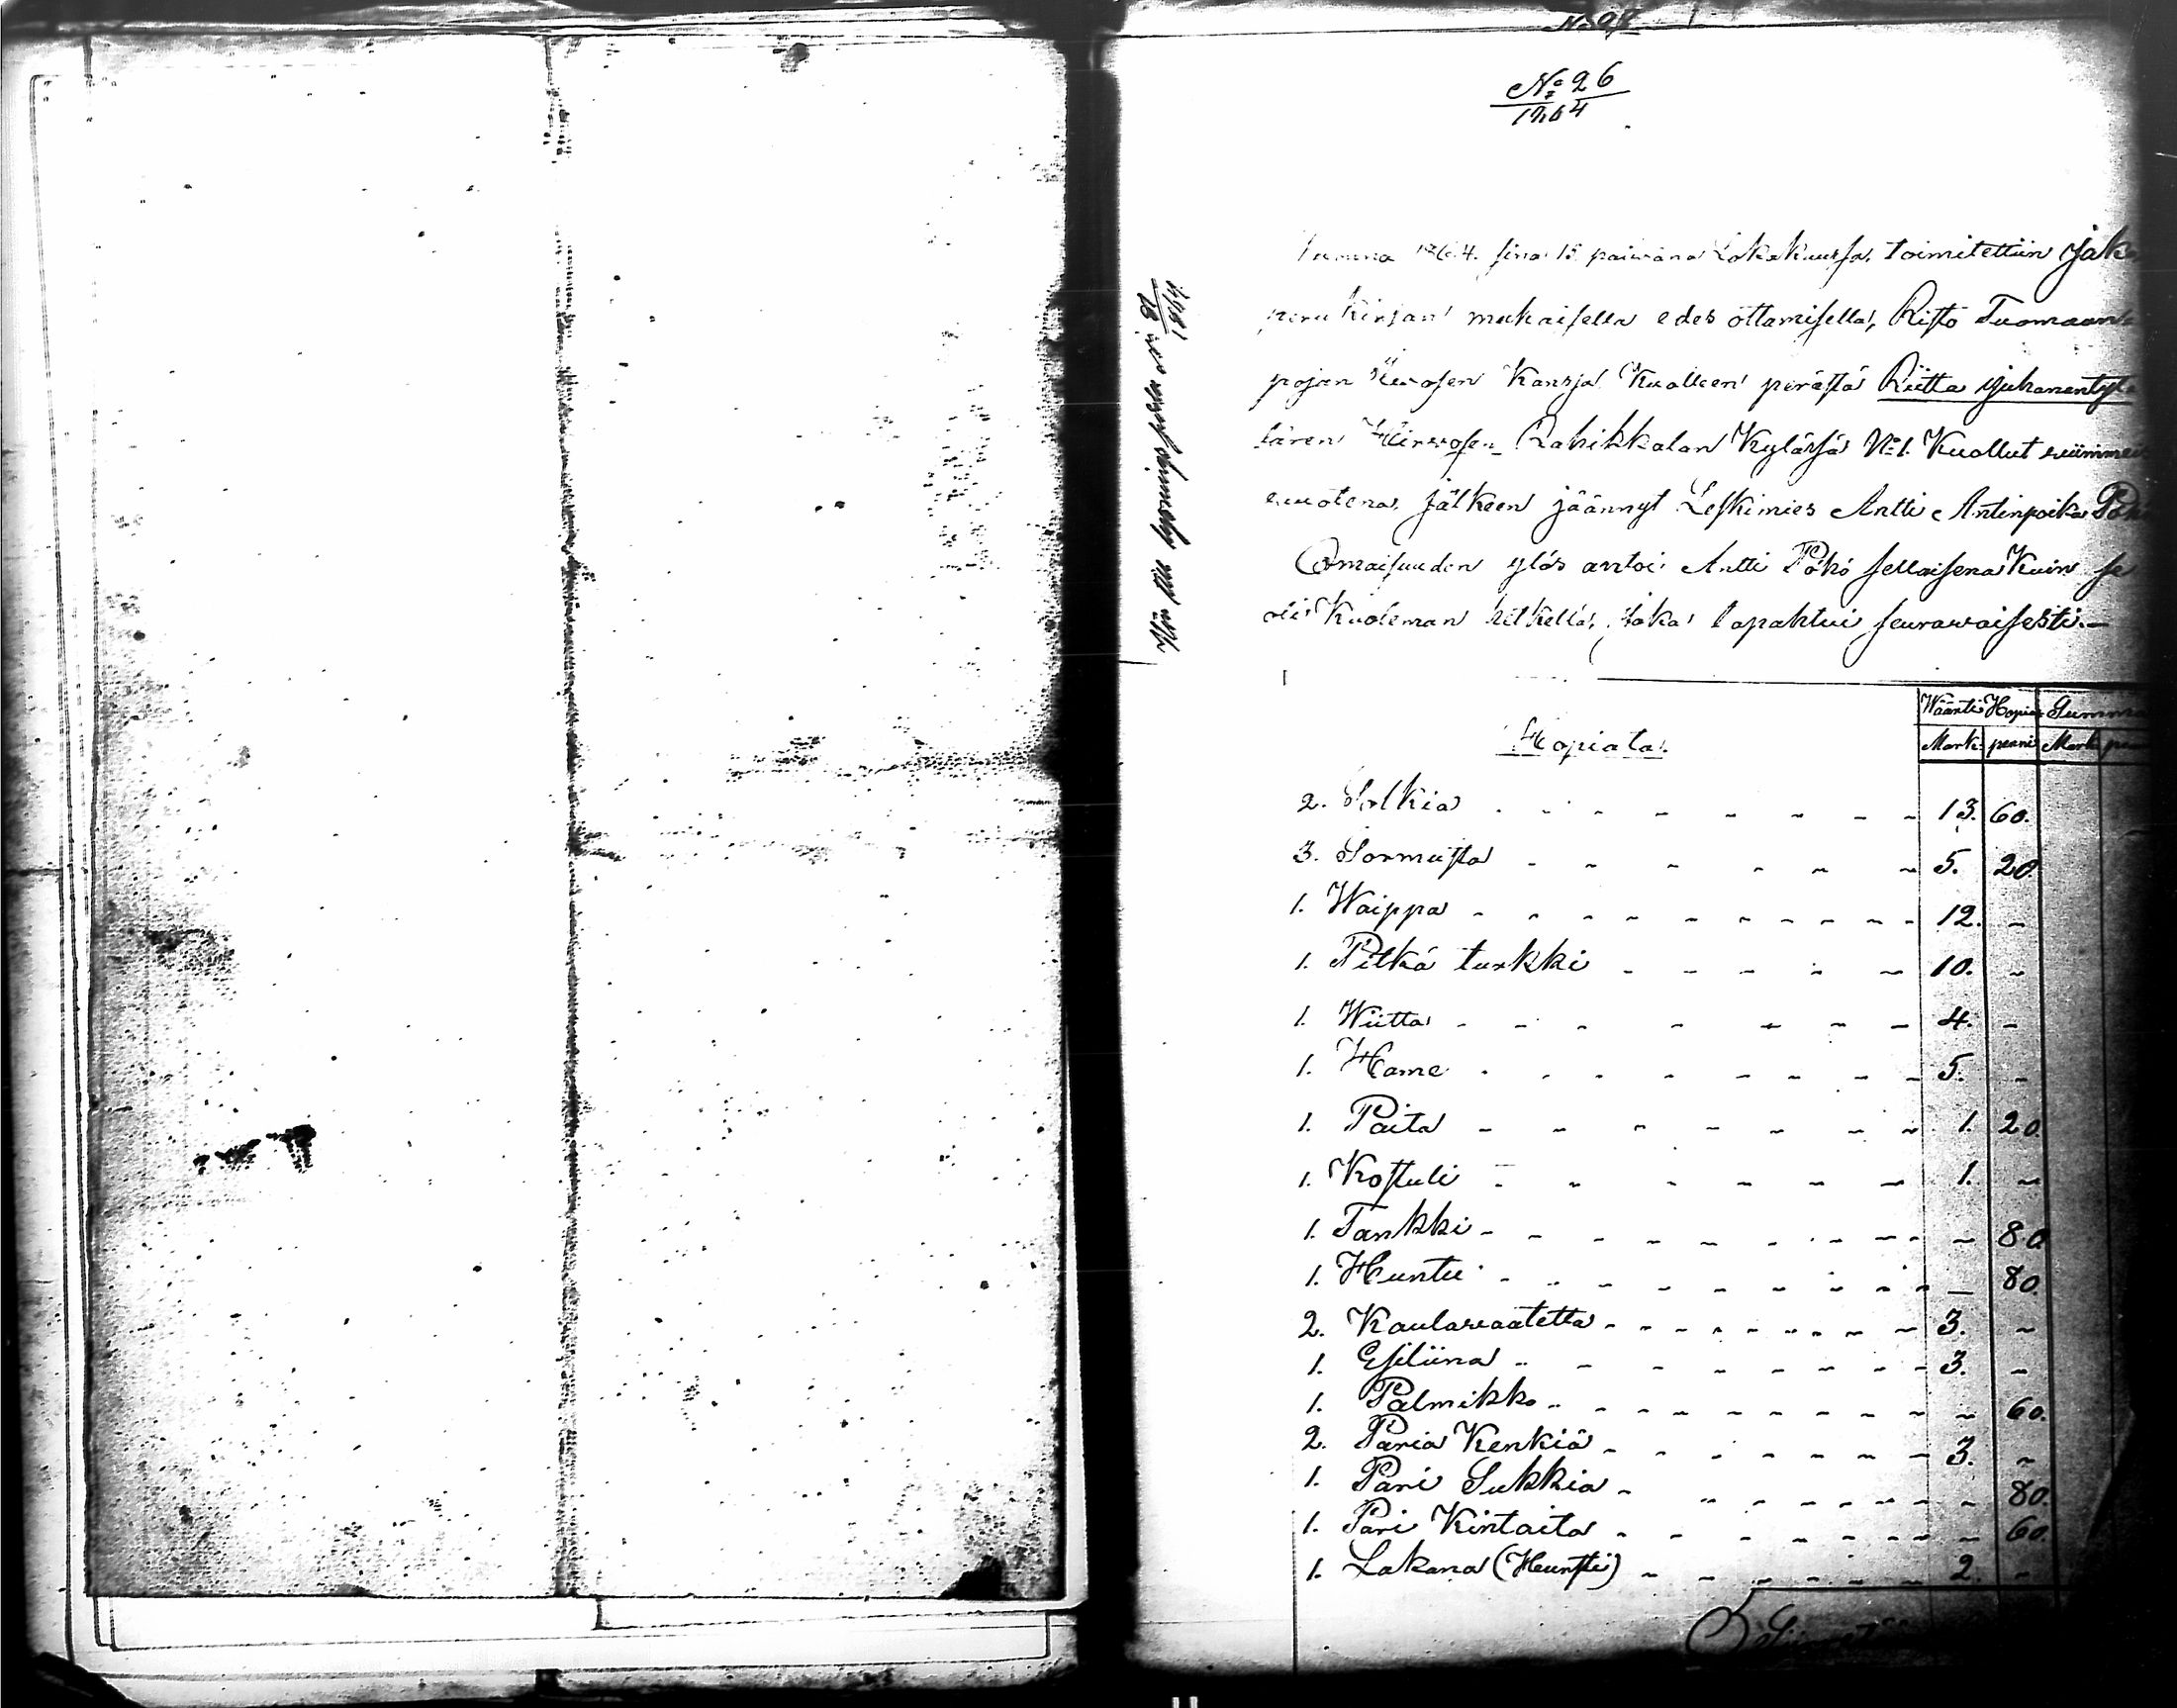 No 26
1864
1864. sinä 15 päiwänä Lokakuussa. toimitettiin jako
perukirjan mukaisella edes ottamisella, Risto Tuomaan
pojan Kanssa Kuolleen perästä Riitta Juhanentyt
tären Hirwosen Rahikkalan Kylässä No 1. Kuollut wiimmeis
wuotena, jälkeen jäännyt Leskimies Antti Antinpoika Pöhö
Omaisuuden ylös antoi Antti Pöhö sellaisena Kuin se
oli Kuoleman hetkellä, joka tapahtui seurawaisesti.—
Wääriti Hopia Summa
Hopiata.
Mark: penni Mark pen
2. Solkia 13. 60.
3. Sormusta 5. 20.
1. Waippa 12. -
1. Pitkä turkki 10. -
1. Wiitta 4. -
1. Hame 5. -
1. Paita 1. 20.
1. Kostuli 1. -
1. Tankki - 80
1. Huntu - 80.
2. Kaulawaatetta 3. -
1. Esiliina 3. -
1. Palmikko - 60.
2. Paria Kenkiä 3. -
1. Pari Sukkia - 80.
1. Pari Kintaita - 60.
1. Lakana (Hunsti) 2. -